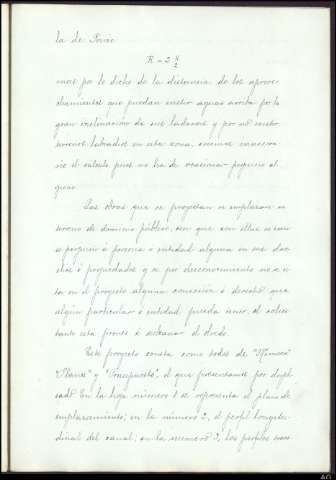 la de Ponce
R = 2 H/2
mas por lo dicho de la distancia de los aprove
chamientos que puedan existir aguas arriba por la
gran inclinacion de sus laderas y por no existir
terrenos labrados en esta zona, creemos innecesa
rio el calculo pues no ha de ocasionar perjuicio al
guno
Las obras que se proyectan se emplazan en
terreno de dominio público, sin que con ellas se cau
se perjuicio á persona o entidad alguna en sus dere
chos ó propiedades y si por desconocimiento no se ci
ta en el proyecto alguna concesión ó derecho que
algún particular ó entidad pueda tener, el solici
tante está pronto á
Este proyecto consta como todos de "Memoria"
"Planos" y "Presupuesto", el que presentamos por dupli
cado. En la hoja número 1 se representa el plano de
emplazamiento; en la número 2, el perfil longitu
dinal del canal; en la número 3, los perfiles trans